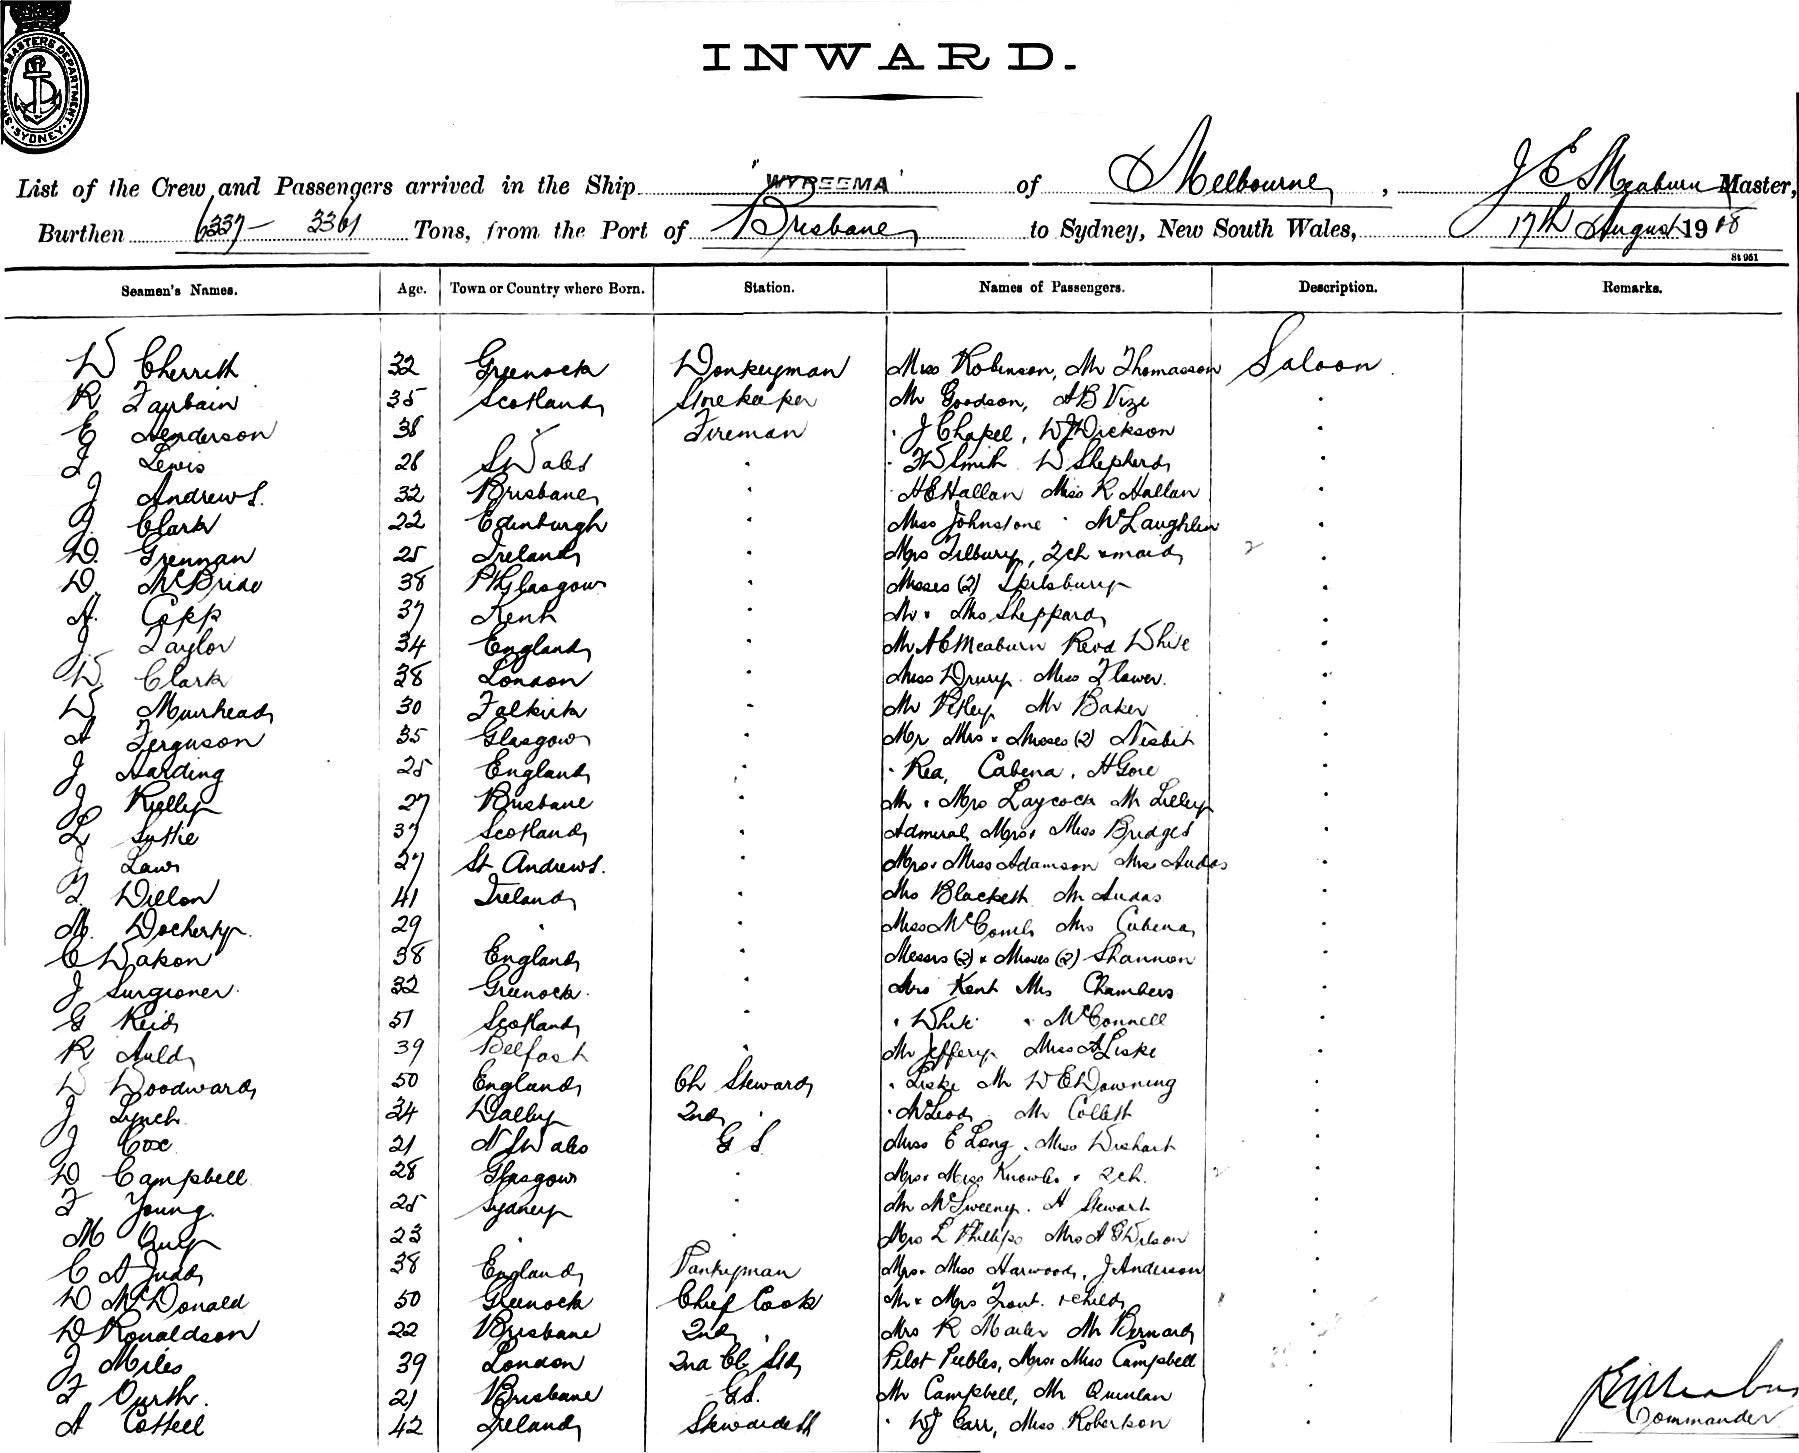 SHIPPING MASTERS DEPARTMENT · SYDNEY ·
INWARD.
List of the Crew and Passengers arrived in the Ship "WYREEMA" of Melbourne, J E Meaburn Master,
Burthen 6337 – 3361 Tons, from the Port of Brisbane to Sydney, New South Wales, 17th August 1908
St 951
Seamen's Names. Age. Town or Country where Born. Station. Names of Passengers. Description. Remarks.
W Cherrith 32 Greenock Donkeyman Miss Robinson, Mr Thomasson Saloon.
R Fairbain 35 Scotland Storekeeper Mr Goodson, A B Vize "
E Henderson 38 " Fireman " J Chapel, W J Dickson "
J Lewis 28 S Wales " " F W Smith W Shepherd "
J Andrews. 32 Brisbane " " H E Hallan Miss R Hallan "
J. Clark 22 Edinburgh " Miss Johnstone " McLaughlin "
D. Grennan 25 Ireland " Mrs Tilbury, 2 ch & maid 2 "
D. McBride 38 Pt Glasgow " Misses (2) Spilsbury "
A. Capp 37 Kent " Mr & Mrs Sheppard "
J. Taylor 34 England " Mr A E Meaburn Revd White "
W. Clark 38 London " Miss Drury Miss Flower. "
W Muirhead 30 Falkirk " Mr Baker "
A Ferguson 35 Glasgow " Mr Mrs & Misses (2) Nesbit "
J Harding 25 England " " Rea, Cabena, H Gore "
J Kelly 27 Brisbane " Mr & Mrs Laycock Mr Lilley "
L Suttie 37 Scotland " Admiral, Mrs & Miss Bridges "
J Law 27 St Andrews. " Mrs & Miss Adamson Mrs Audas "
T. Dillon 41 Ireland " Mrs Blackett Mr Audas "
M. Docherty. 29 " " Miss McComb Mrs Cabena "
C Dakon 38 England " Messrs (2) & Misses (2) Shannon "
J Surgioner. 32 Greenock. " Mrs Kent Mrs Chambers "
G Reid 51 Scotland " " White " McConnell "
R Auld 39 Belfast " Mr Jeffery Miss A Liske "
W Woodward 50 England Ch Steward " Liske Mr W E Downing "
J Lynch 34 Dalby 2nd " " McLeod Mr Collett "
J Cox 21 N S Wales G S. Miss E Long, Miss Wishart "
D Campbell 28 Glasgow " Mrs & Miss Knowles & 2 ch. 2 "
F Young. 25 Sydney " Mr McSweeny. H Stewart "
M Quip 23 " " Mrs L Phillips Mrs A G Wilson "
C A Judd 38 England Pantryman Mrs & Miss Harwood, J Anderson "
D McDonald 50 Greenock Chief Cook Mr & Mrs Trout. & child "
D Ronaldson 22 Brisbane 2nd " Mrs R Marler Mr Bernard "
J Miles 39 London 2nd Cl Std Pilot Peebles, Mrs & Miss Campbell "
F Ourth. 21 Brisbane G S. Mr Campbell, Mr Quinlan "
A Cottell 42 Ireland Stewardess " W J Carr, Miss Robertson "
J E Meaburn
Commander